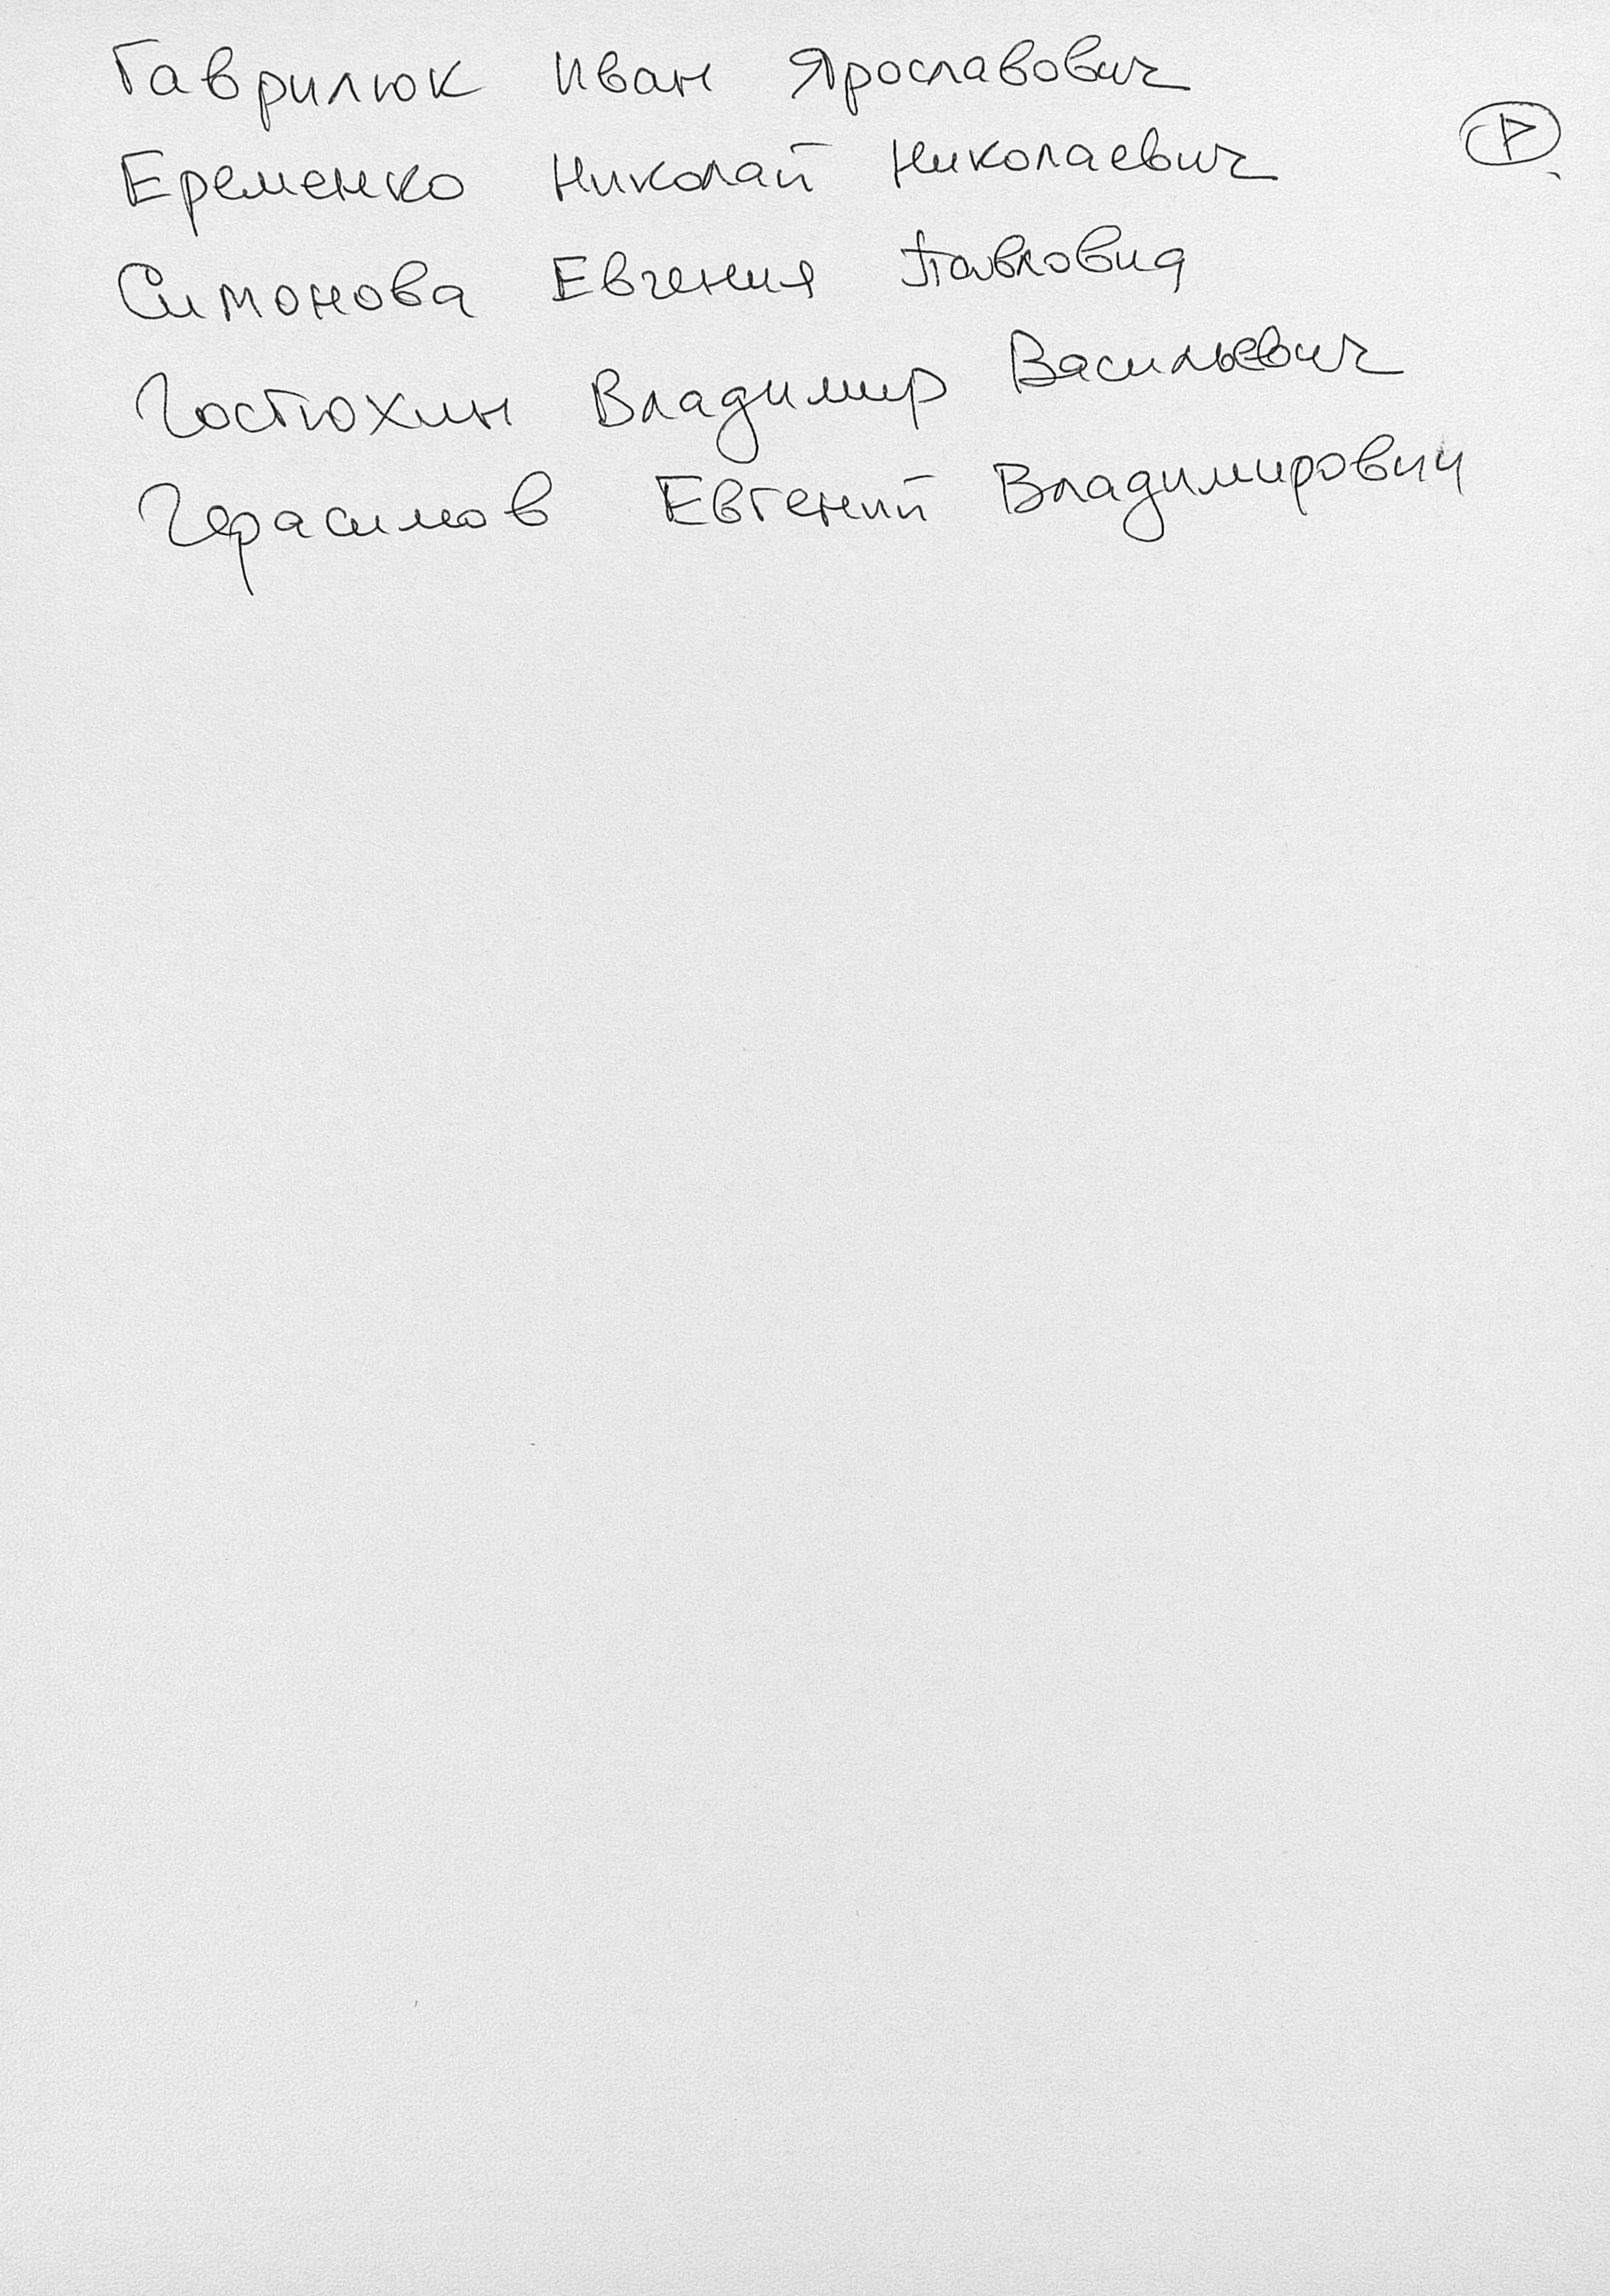 Гаврилюк Иван Ярославович
Р
Еременко Николай Николаевич
Симонова Евгения
Гостюхин Владимир Васильевич
Герасимов Евгений Владимирович